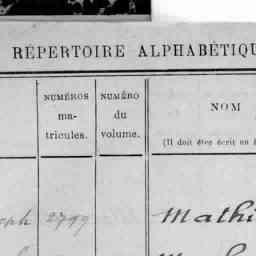 RÉPERTOIRE ALPHABÉTIQU
NUMÉROS
ma-
tricules.
NUMÉRO
du
volume.
NOM
(Il doit être écrit en
eph 2799 Mathi